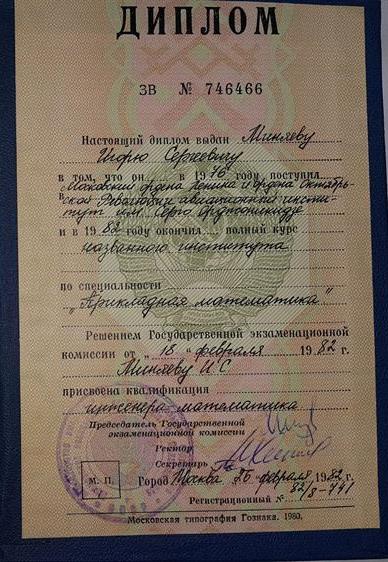 ДИПЛОМ
ЗВ № 746466
Настоящий диплом выдан Миняеву
Игорю Сергеевичу
в том, что он в 1976 году поступил
в Московский ордена Ленина и ордена Октябрь-
ской Революции авиационный инсти-
тут им. Серго Орджоникидзе
и в 1982 году окончил полный курс
названного института
по специальности
„Прикладная математика"
Решением Государственной экзаменационной
комиссии от „18" февраля 1982 г.
Миняеву И С
присвоена квалификация
инженера-математика
Председатель Государственной
экзаменационной комиссии
Ректор
Секретарь
М. П.
Город Москва 26 февраля 1982 г.
Регистрационный № 82/8-741
Московская типография Гознака. 1980.